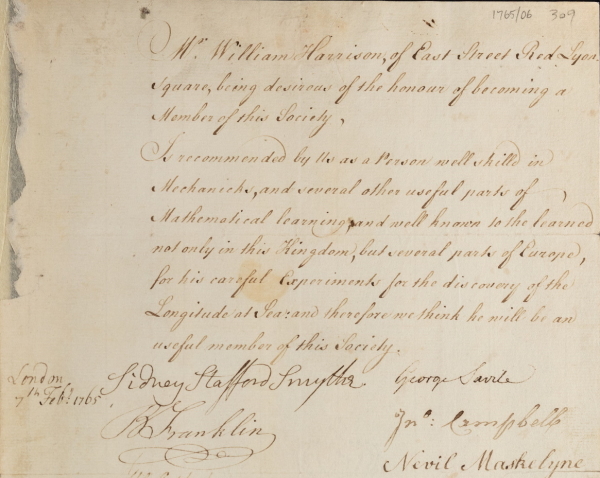 1765/06 309
Mr. William Harrison, of East Street Red Lyon
Square, being desirous of the honour of becoming a
Member of this Society,
Is recommended by Us as a Person well skilld in
Mechanicks, and several other useful parts of
Mathematical learning, and well known to the learned
not only in this Kingdom, but several parts of Europe,
for his careful Experiments for the discovery of the
Longitude at Sea: and therefore we think he will be an
useful member of this Society.
London Sidney Stafford Smythe George Savile
7th Feb: 1765
B Franklin Jno: Campbell
Nevil Maskelyne